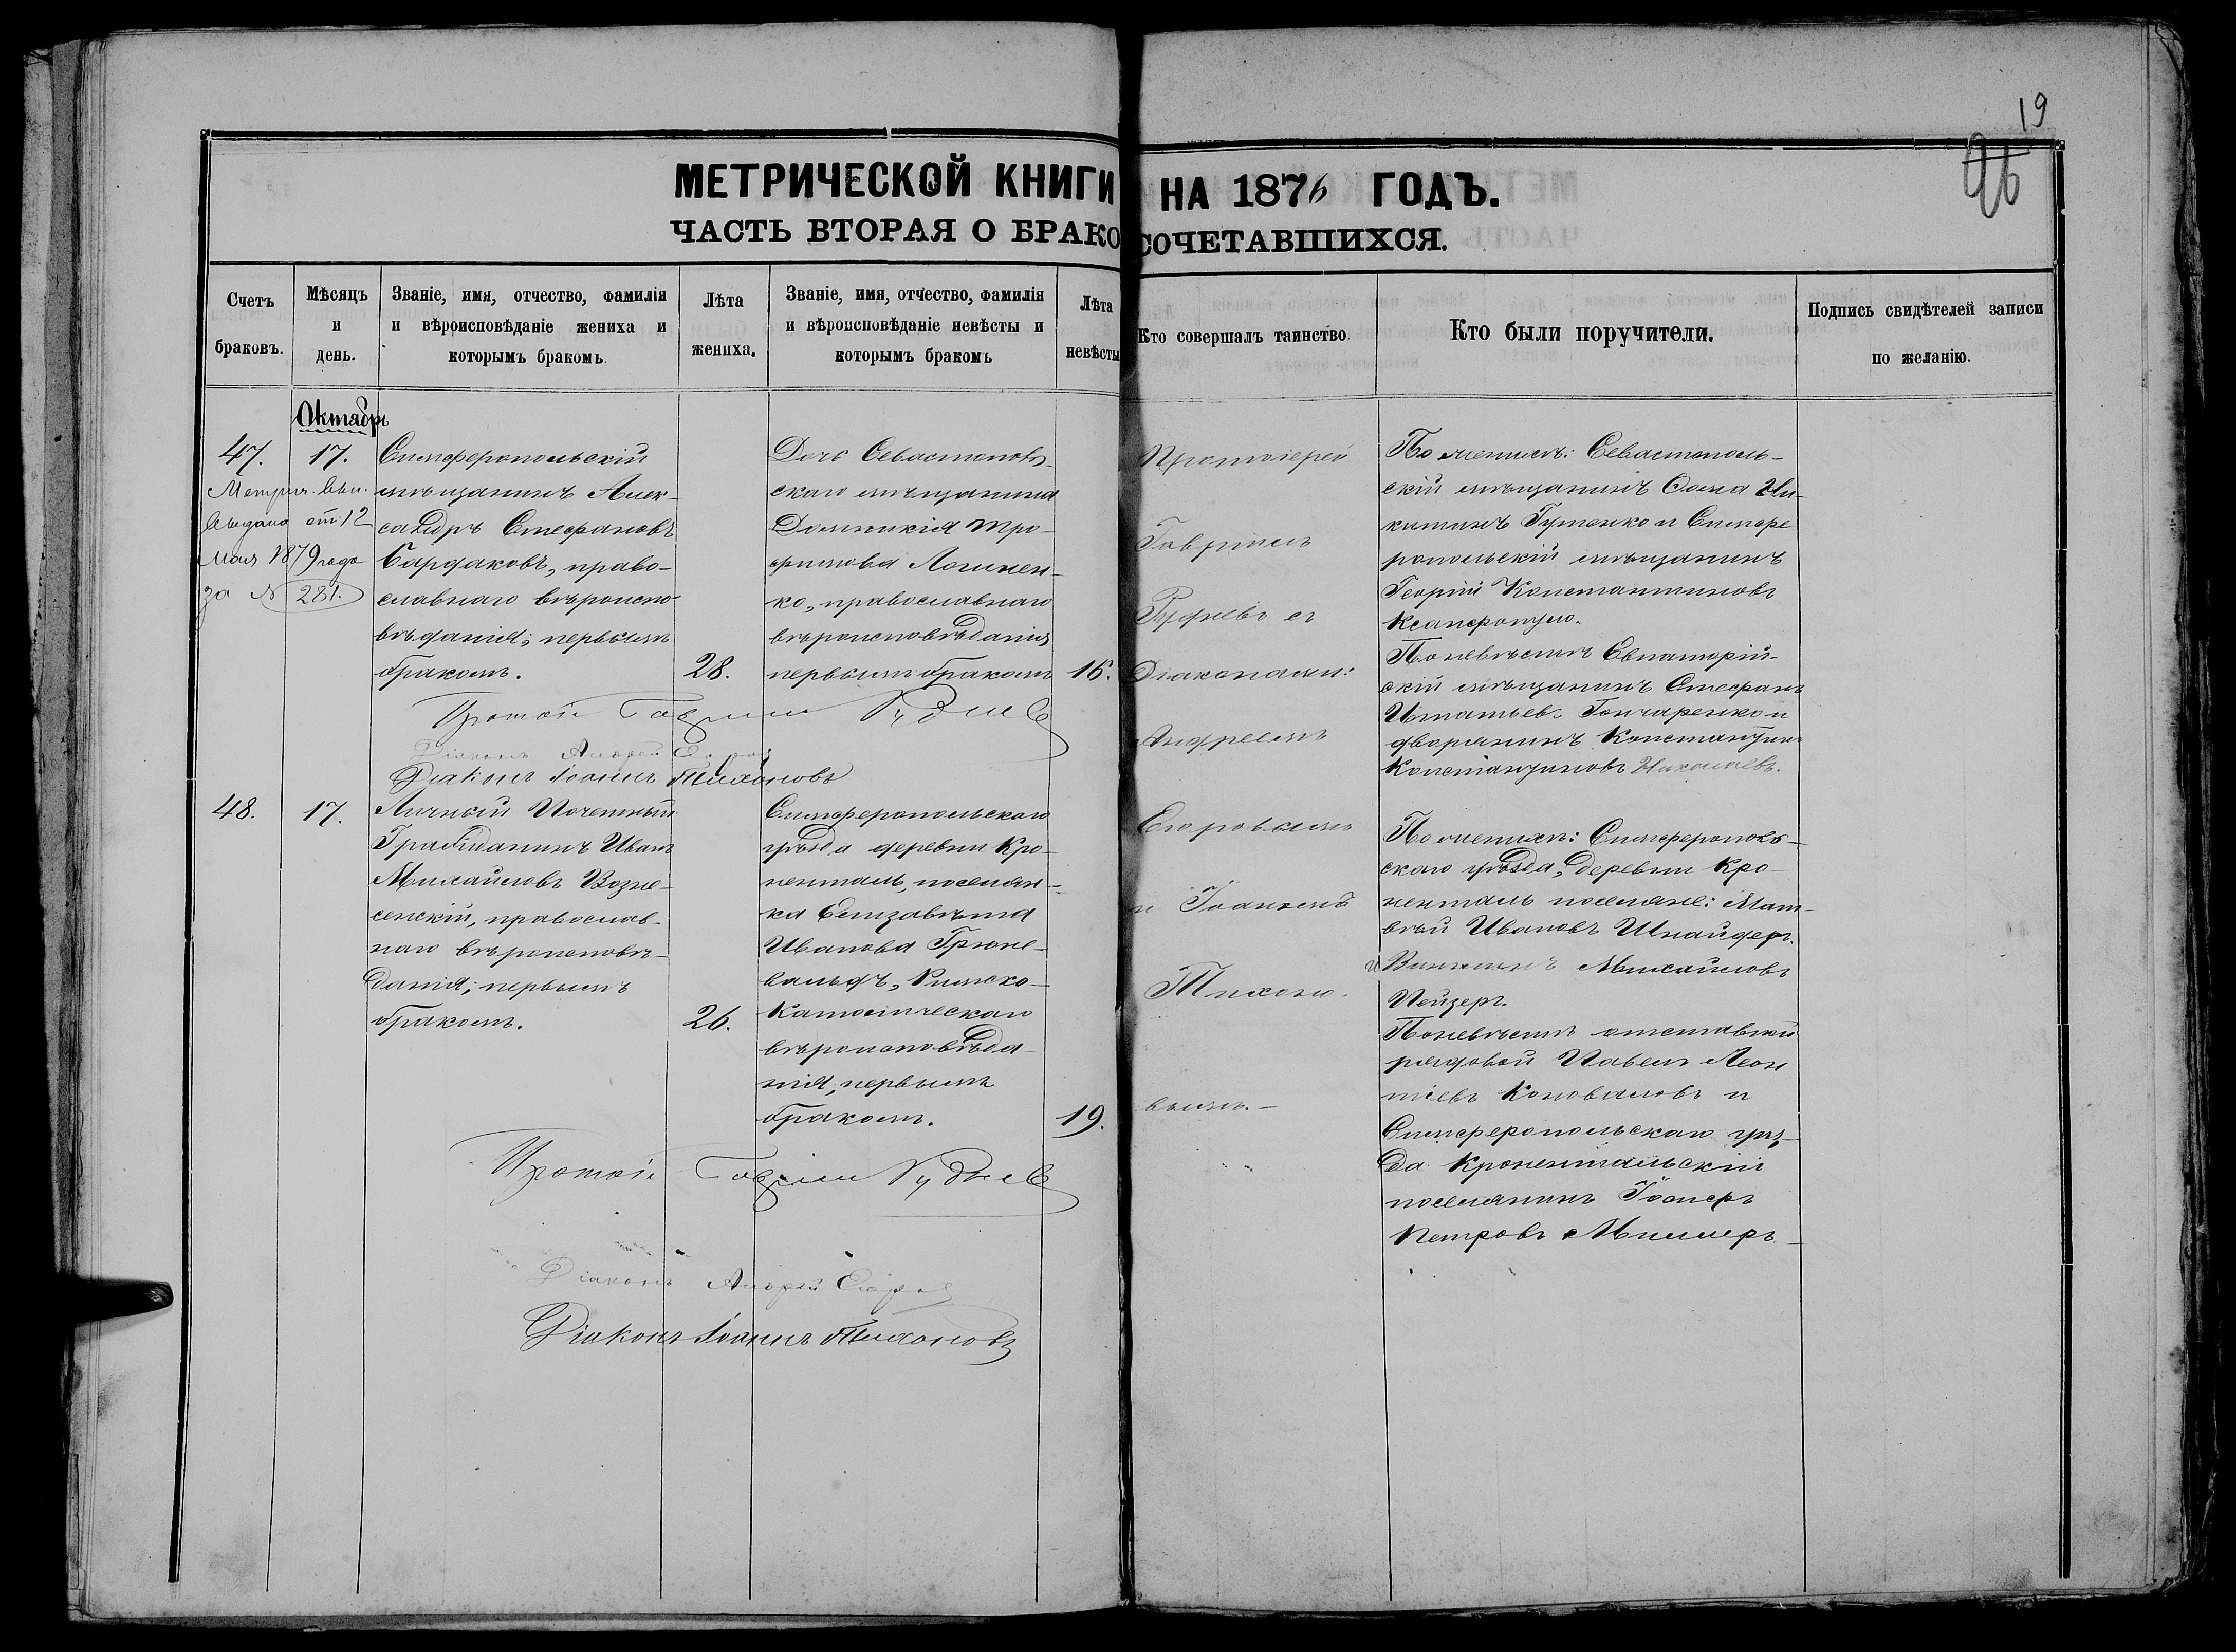 19
96
МЕТРИЧЕСКОЙ КНИГИ НА 1876 ГОДЪ.
ЧАСТЬ ВТОРАЯ О БРАКОСОЧЕТАВШИХСЯ.
Счетъ
браковъ.
Мѣсяцъ
и
день.
Званіе, имя, отчество, фамилія
и вѣроисповѣданіе жениха и
которымъ бракомъ.
Лѣта
жениха.
Званіе, имя, отчество, фамилія
и вѣроисповѣданіе невѣсты и
которымъ бракомъ
Лѣта
невѣсты
Кто совершалъ таинство.
Кто были поручители.
Подпись свидѣтелей записи
по желанію.
Октябрь
47.
17.
Метрич. вып.
выдана от 12
Мая 1879 года
за № 281.
Симферопольскій
мѣщанинъ Алек-
сандръ Стефановъ
Сардаковъ, право-
славнаго вѣроиспо-
вѣданія; первымъ
бракомъ.
28.
Дочь Севастополь-
скаго мѣщанина
Домникія Тро-
фимова Логинен-
ко, православнаго
вѣроисповѣданія
первымъ бракомъ
16.
Протоіерей
Гавріилъ
Рудневъ съ
Діаконами:
Андреемъ
Егоровымъ
и Іоанномъ
Тихоно-
вымъ.-
По женихѣ: Севастополь-
скій мѣщанинъ Ѳома Ни-
китинъ Гутенко и Симфе
ропольскій мѣщанинъ
Георгій Константиновъ
Ксанфопуло.
По невѣстѣ Евпаторій-
скій мѣщанинъ Стефанъ
Игнатьевъ Гончаренко и
дворянинъ Константинъ
Константиновъ Николаевъ.
Протоіе Гавріилъ Рудневъ
Діаконъ Андрей Егоровъ
Діаконъ Іоаннъ Тихоновъ
48.
17.
Личный Почетный
Гражданинъ Иванъ
Михайловъ Возне-
сенскій, православ-
наго вѣроисповѣ-
данія; первымъ
бракомъ.
26.
Симферопольскаго
уѣзда деревни Кро-
ненталь, поселян-
ка Елизавѣта
Иванова Грюне-
вальдъ, Римско-
Католическаго
вѣроисповѣда-
нія, первымъ
бракомъ.
19.
По женихѣ: Симферополь-
скаго уѣзда, деревни Кро-
ненталь поселяне: Мат-
вѣй Ивановъ Шнайдеръ.
и Михайловъ
Пейзеръ.
По невѣстѣ отставной
рядовой Павелъ Леон
тіевъ Коноваловъ и
Симферопольскаго уѣз-
да Кронентальскій
поселянинъ Іосифъ
Петровъ Миллеръ
Протоі. Гавріилъ Рудневъ
Діаконъ Андрей Егоровъ
Діаконъ Іоаннъ Тихоновъ